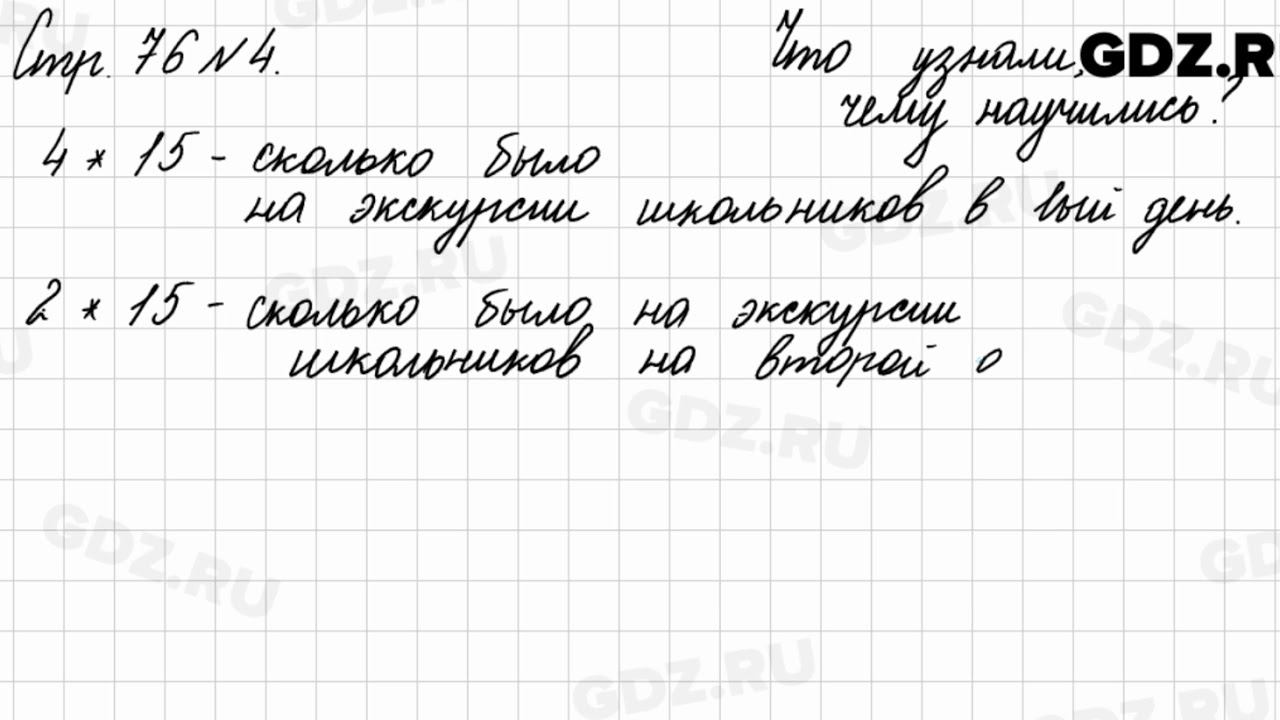 Стр. 76 N 4.
Что узнали,
чему научились?
GDZ.R
4 * 15 - сколько было
на экскурсии школьников в 1ый день.
2 * 15 - сколько было на экскурсии
школьников на второй
GDZ.RU
GDZ.RU
GDZ.RU
GDZ.RU
GDZ.RU
GDZ.RU